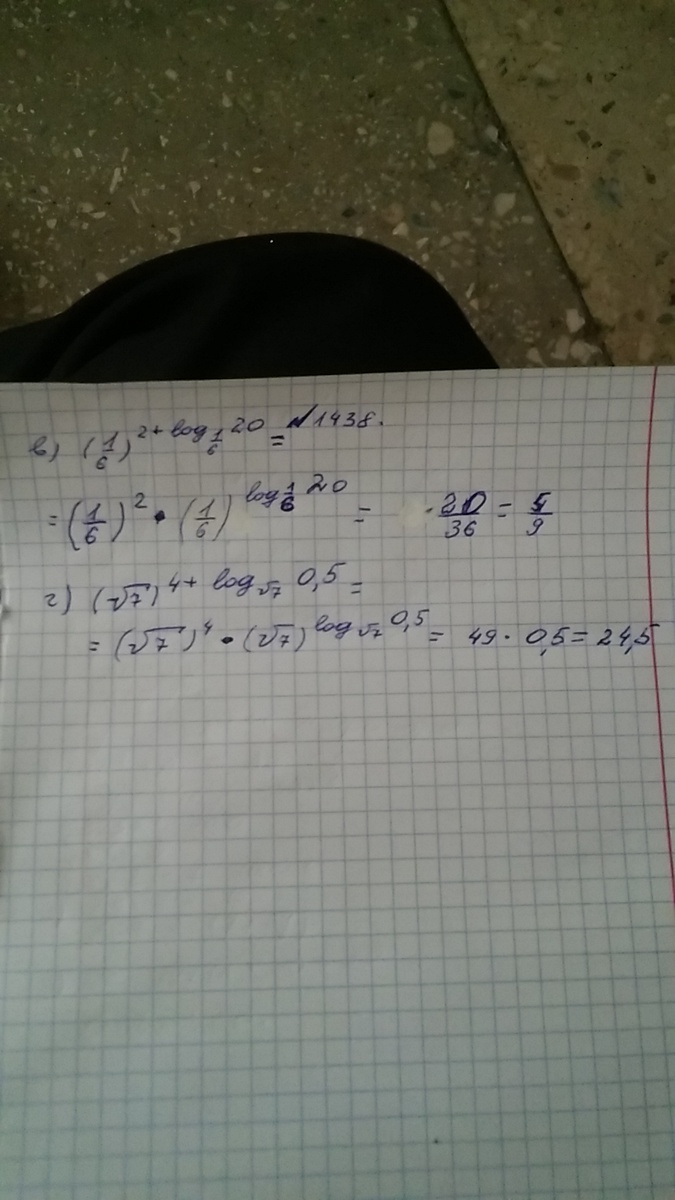 №1438.
в) (1/6)^(2+log_(1/6) 20) =
= (1/6)^2 • (1/6)^(log_(1/6) 20) = 20/36 = 5/9
г) (√7)^(4+log_√7 0,5) =
= (√7)^4 • (√7)^(log_√7 0,5) = 49 · 0,5 = 24,5